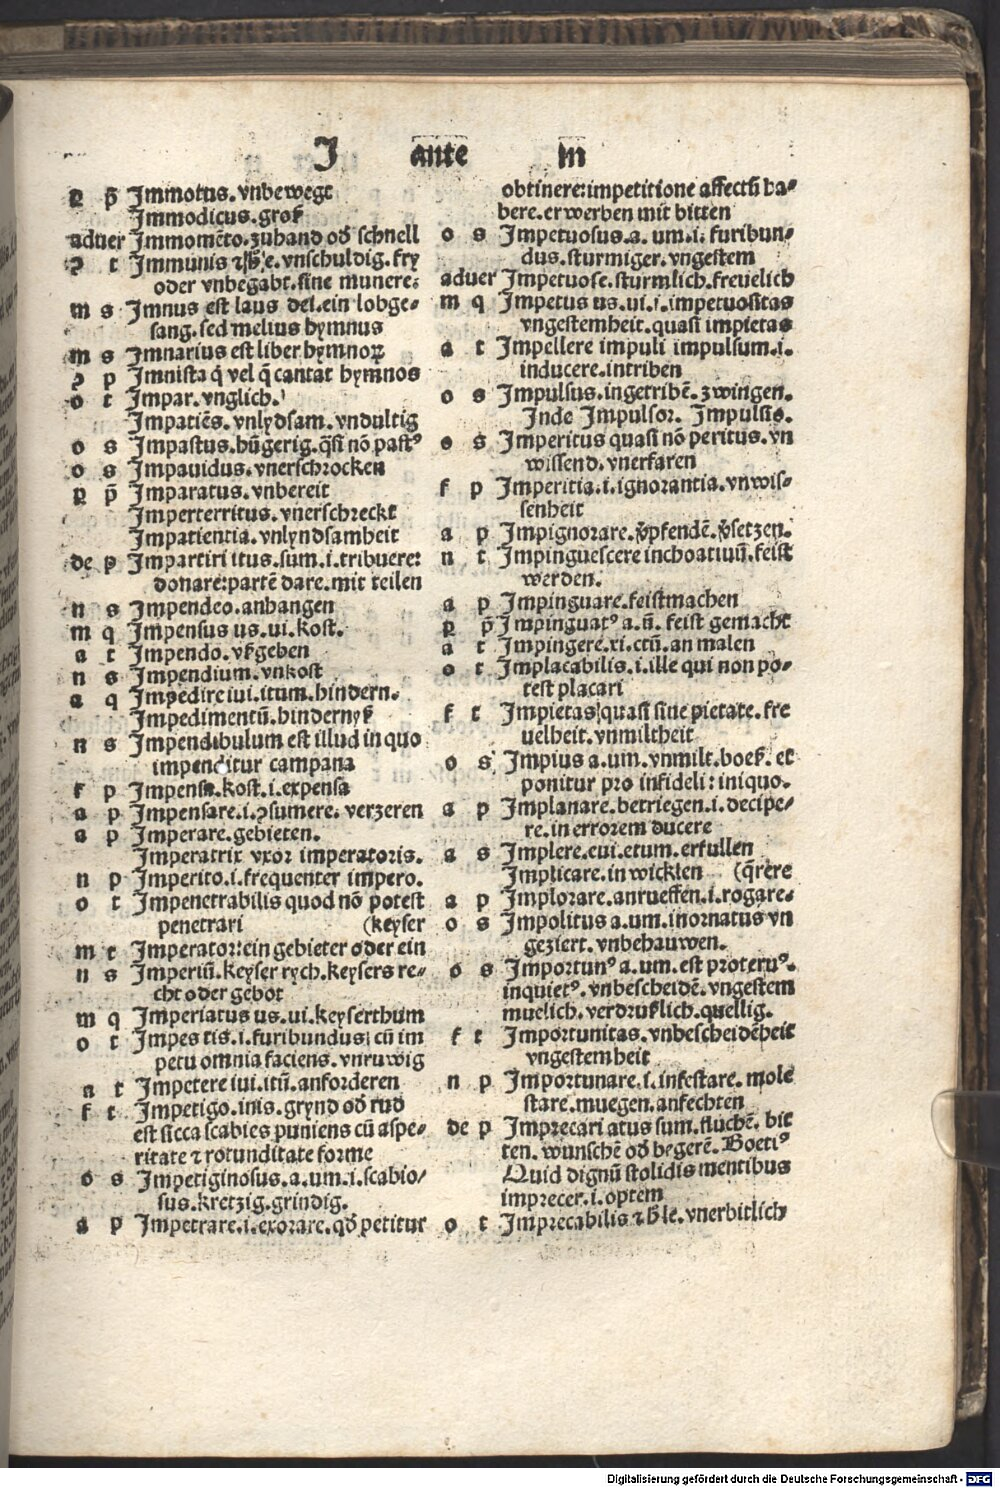 J ante m
ꝑ p̄ Jmmotus. vnbewegt
Jmmodicus. groß
aduer Jmmomēto. zuhand od̄ schnell
ꝯ t Jmmunis ⁊ hͦ e. vnschuldig. fry
oder vnbegabt. sine munere:
m s Jmnus est laus dei. ein lobge-
sang. sed melius hymnus
m s Jmnarius est liber hymnoꝝ
ꝯ p Jmnista q̇ vel q̄ cantat hymnos
o t Jmpar. vnglich.
Jmpatiēs. vnlydsam. vndultig
o s Jmpastus. hūgerig. q̄si nō pastꝰ
o s Jmpauidus. vnerschrocken
ꝑ p̄ Jmparatus. vnbereit
Jmperterritus. vnerschreckt
Jmpatientia. vnlyndsamheit
de p Jmpartiri itus. sum. i. tribuere:
donare: partē dare. mit teilen
n s Jmpendeo. anhangen
m q Jmpensus us. ui. kost.
a t Jmpendo. vßgeben
n s Jmpendium. vnkost
a q Jmpedire iui. itum. hindern.
Jmpedimentū. hindernyß
n s Jmpendibulum est illud in quo
impenditur campana
f p Jmpensa. kost. i. expensa
a p Jmpensare. i. ꝯsumere. verzeren
a p Jmperare. gebieten.
Jmperatrix vxor imperatoris.
n p Jmperito. i. frequenter impero.
o t Jmpenetrabilis quod nō potest
penetrari (keyser
m t Jmperator: ein gebieter oder ein
n s Jmperiū. keyser rych. keysers re-
cht oder gebot
m q Jmperiatus us. ui. keyserthum
o t Jmpes tis. i. furibundus: cū im
petu omnia faciens. vnruwig
a t Jmpetere iui. itū. anforderen
f t Jmpetigo. inis. grynd od̄ rud
est sicca scabies puniens cū aspe-
ritate ⁊ rotunditate forme
o s Jmpetiginosus. a. um. i. scabio-
sus. kretzig. grindig.
a p Jmpetrare. i. exorare. qd̄ petitur
obtinere: impetitione affectū ha-
bere. erwerben mit bitten
o s Jmpetuosus. a. um. i. furibun-
dus. sturmiger. vngestem
aduer Jmpetuose. sturmlich. freuelich
m q Jmpetus us. ui. i. impetuositas
vngestemheit. quasi impietas
a t Jmpellere impuli impulsum. i.
inducere. intriben
o s Jmpulsus. ingetribē. zwingen.
Jnde Jmpulsor. Jmpulsio.
o s Jmperitus quasi nō peritus. vn
wissend. vnerfaren
f p Jmperitia. i. ignorantia. vnwis-
senheit
a p Jmpignorare. v̄pfendē. v̄setzen.
n t Jmpinguescere inchoatiuū. feist
werden.
a p Jmpinguare. feistmachen
ꝑ p̄ Jmpinguatꝰ a. ū. feist gemacht
a t Jmpingere. xi. ctū. an malen
o t Jmplacabilis. i. ille qui non po-
test placari
f t Jmpietas: quasi sine pietate. fre
uelheit. vnmiltheit
o s Jmpius a. um. vnmilt. boeß. et
ponitur pro infideli: iniquo.
a p Jmplanare. betriegen. i. decipe-
re. in errorem ducere
a s Jmplere. eui. etum. erfullen
Jmplicare. in wicklen (q̄rere
a p Jmplorare. anrueffen. i. rogare.
o s Jmpolitus a. um. inornatus vn
geziert. vnbehauwen.
o s Jmportunꝰ a. um. est proteruꝰ.
inquietꝰ. vnbescheidē. vngestem
muelich. verdrußlich. quellig.
f t Jmportunitas. vnbescheidēheit
vngestemheit
n p Jmportunare. i. infestare. mole
stare. muegen. anfechten
de p Jmprecari atus sum. fluchē. bit
ten. wunschē od̄ begerē. Boetiꝰ
Quid dignū stolidis mentibus
imprecer. i. optem
o t Jmprecabilis ⁊ hͦ le. vnerbitlich
Digitalisierung gefördert durch die Deutsche Forschungsgemeinschaft - DFG